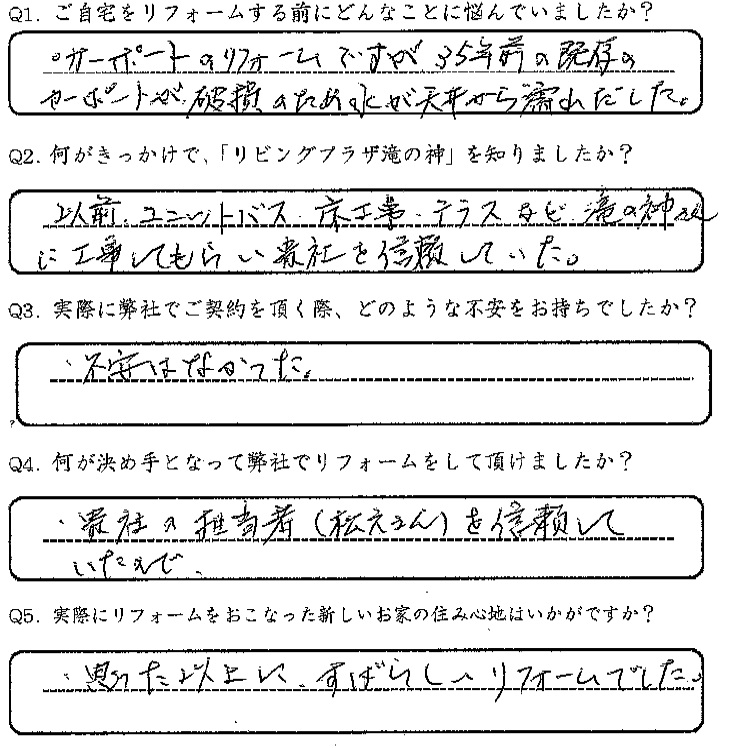 Q1. ご自宅をリフォームする前にどんなことに悩んでいましたか？
・カーポートのリフォームですが 35年前の既存の
カーポートが破損のため水が天井から濡れだした。
Q2. 何がきっかけで、「リビングプラザ滝の神」を知りましたか？
以前、ユニットバス・床工事・テラスなど 滝の神さん
に工事してもらい貴社を信頼していた。
Q3. 実際に弊社でご契約を頂く際、どのような不安をお持ちでしたか？
・不安はなかった。
Q4. 何が決め手となって弊社でリフォームをして頂けましたか？
・貴社の担当者（松元さん）を信頼して
いたので、
Q5. 実際にリフォームをおこなった新しいお家の住み心地はいかがですか？
・思った以上に、すばらしいリフォームでした。